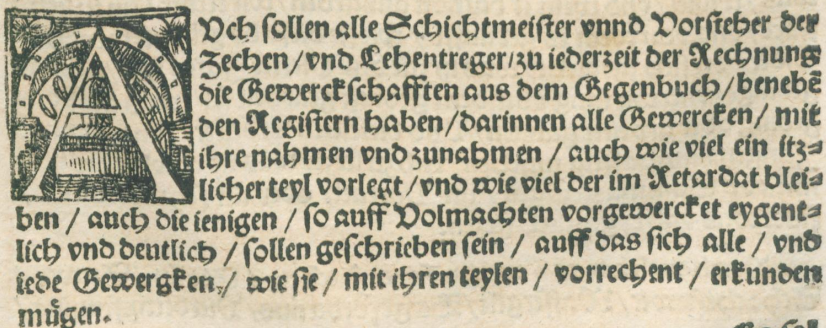 AVch sollen alle Schichtmeister vnnd Vorsteher der
Zechen / vnd Lehentreger / zu iederzeit der Rechnung
die Gewerckschafften aus dem Gegenbuch / benebē
den Registern haben / darinnen alle Gewercken / mit
ihre nahmen vnd zunahmen / auch wie viel ein itz⸗
licher teyl vorlegt / vnd wie viel der im Retardat blei⸗
ben / auch die ienigen / so auff Volmachten vorgewercket eygent⸗
lich vnd deutlich / sollen geschrieben sein / auff das sich alle / vnd
iede Gewergken / wie sie / mit ihren teylen / vorrechent / erkunden
mügen.